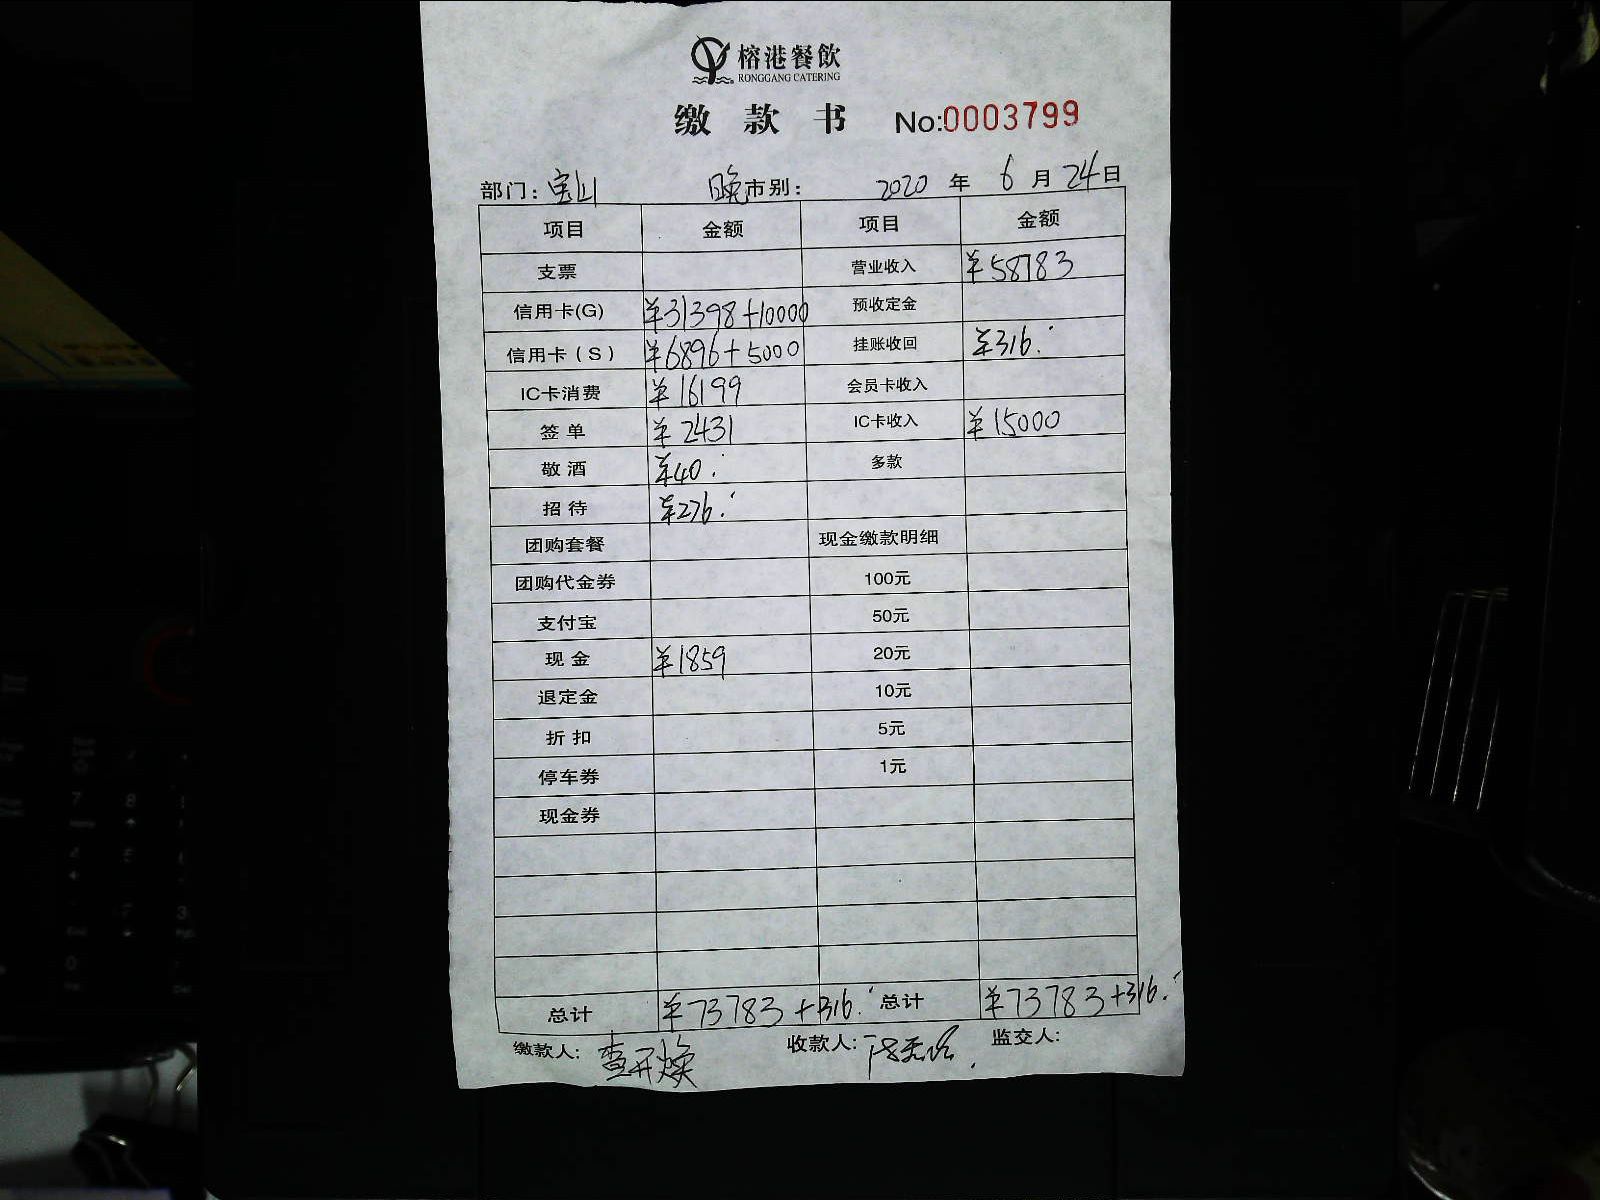 榕港餐飲
RONGGANG CATERING
缴 款 书 No:0003799
部门: 宝山 晚市别: 2020 年 6 月 24日
项目 金额 项目 金额
支票 营业收入 ¥58783
信用卡(G) ¥31398+10000 预收定金
信用卡(S) ¥6896+5000 挂账收回 ¥316.
IC卡消费 ¥16199 会员卡收入
签单 ¥2431 IC卡收入 ¥15000
敬酒 ¥40. 多款
招待 ¥276.
团购套餐 现金缴款明细
团购代金券 100元
支付宝 50元
现金 ¥1859 20元
退定金 10元
折扣 5元
停车券 1元
现金券
总计 ¥73783+316. 总计 ¥73783+316.
缴款人: 查开焕 收款人: 监交人: